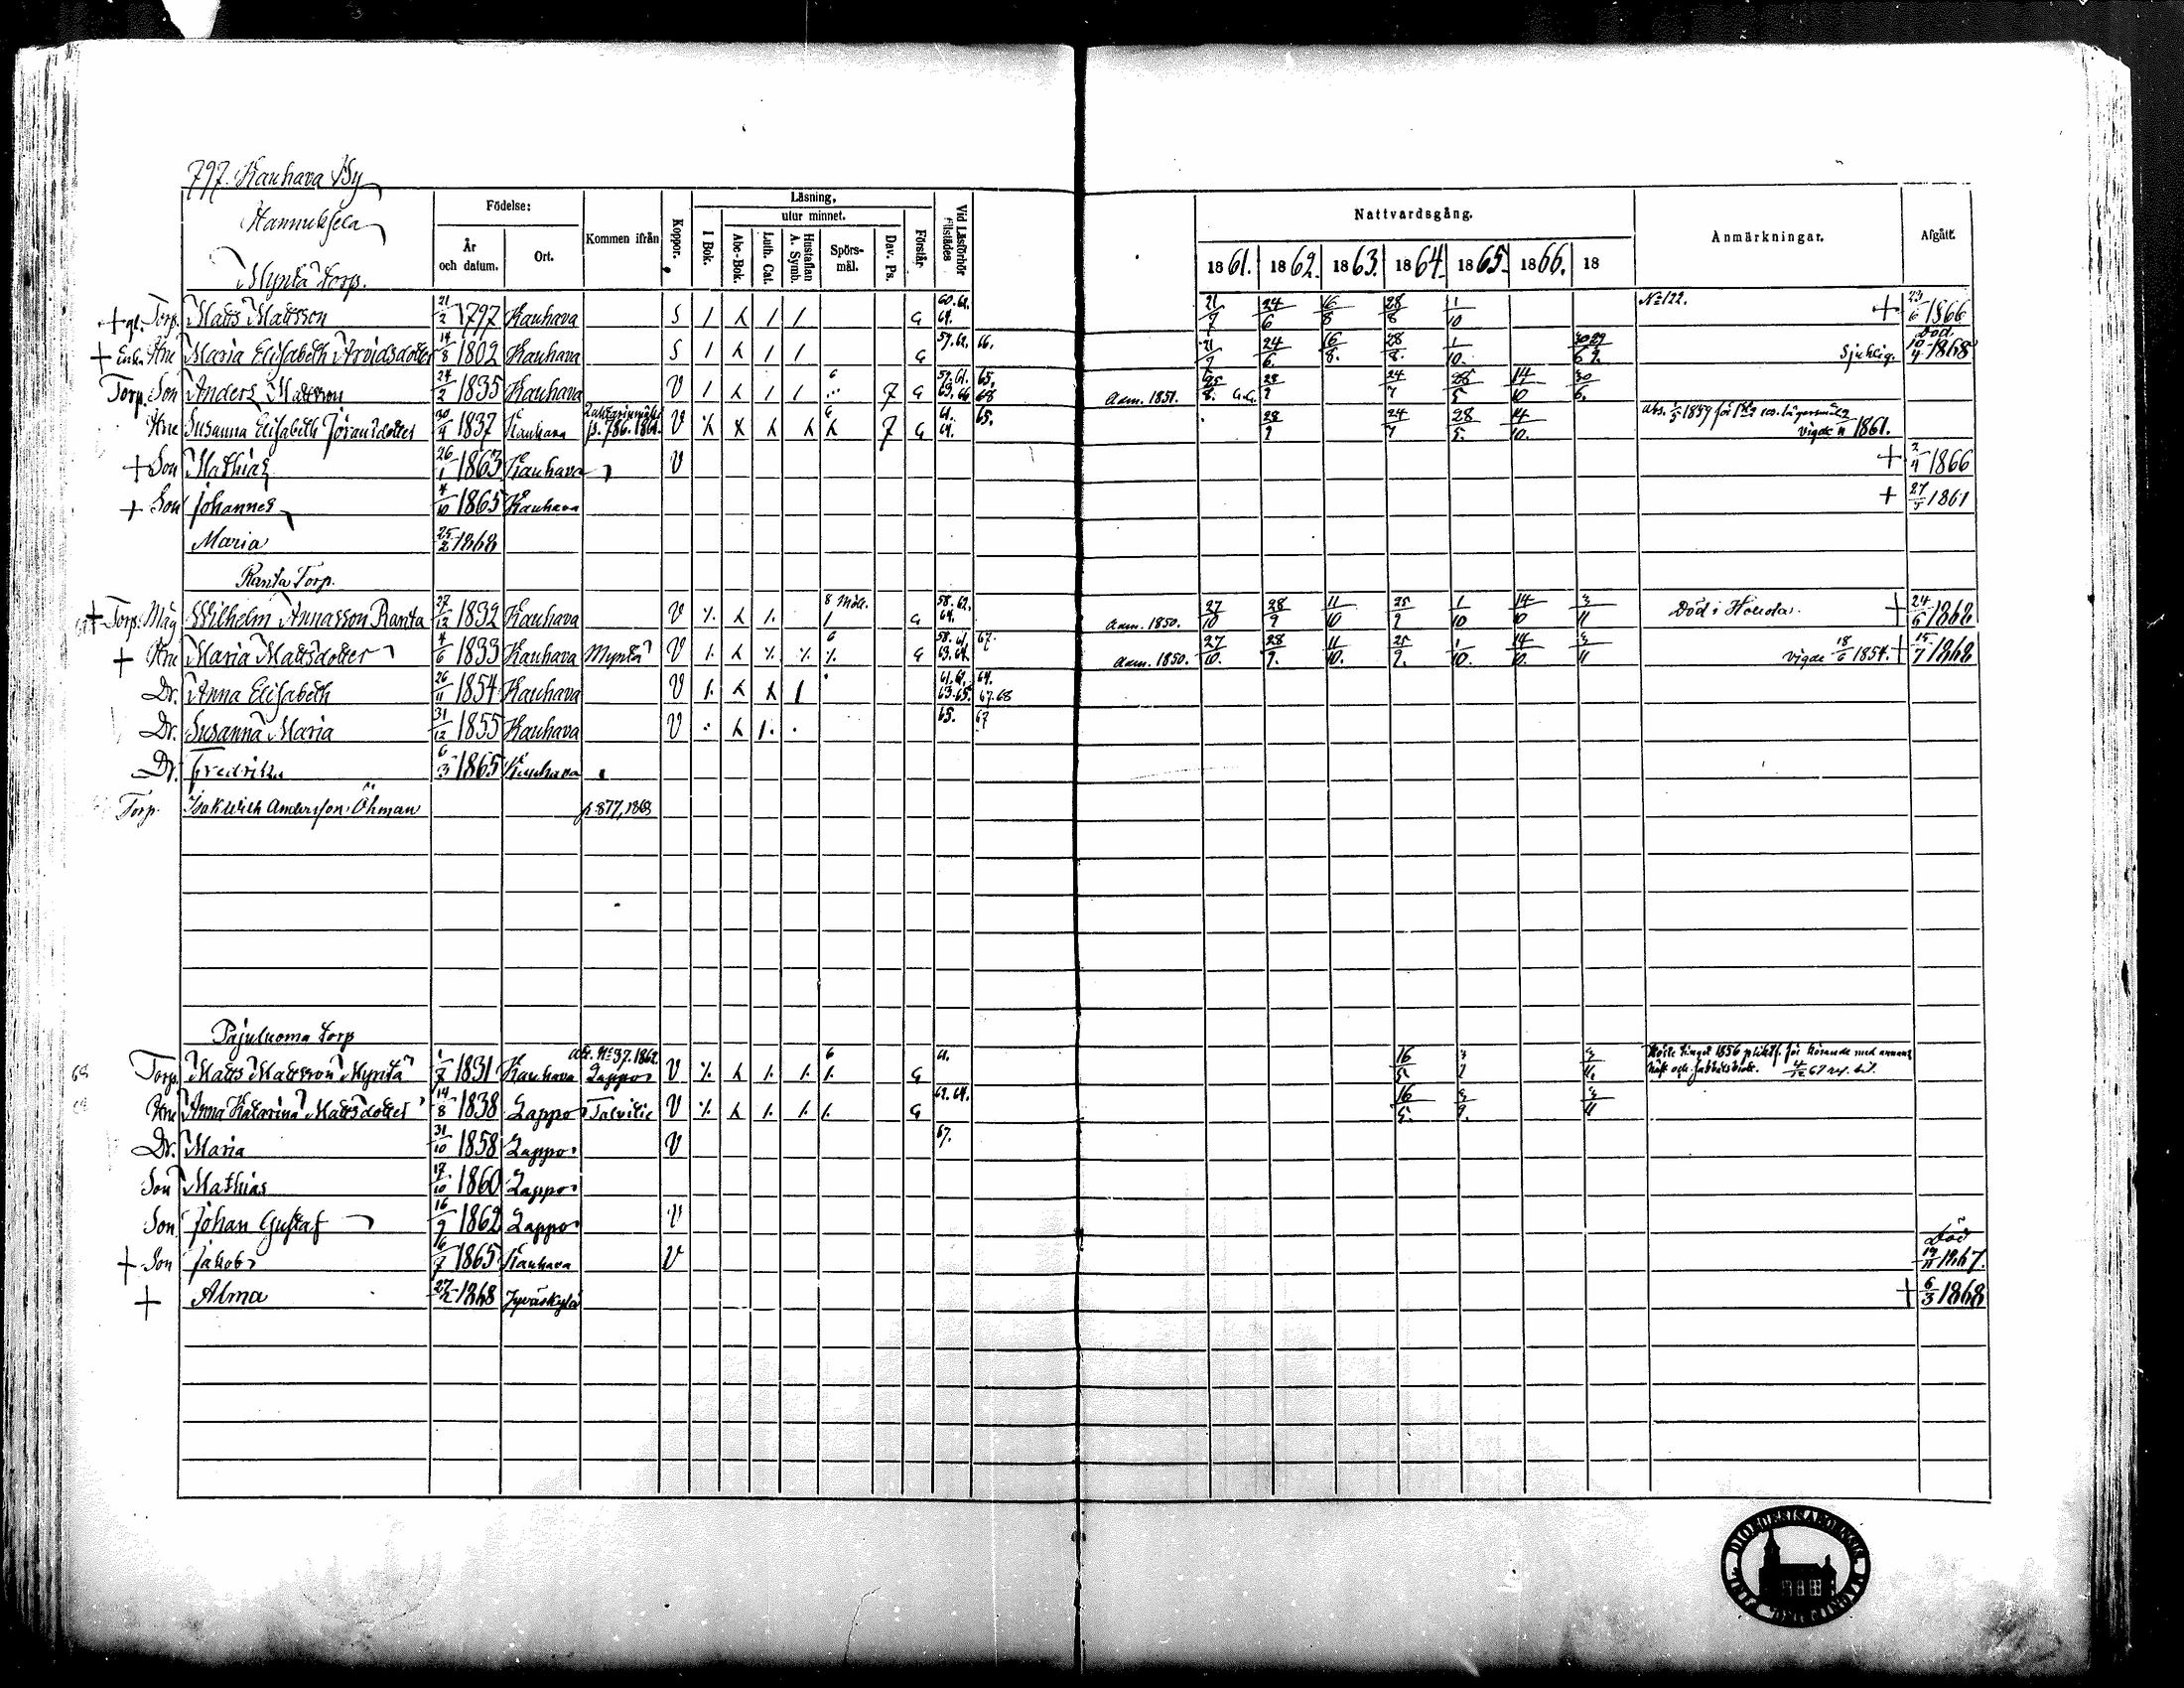 797. Kauhava By
Hannuksela
Myntä Torp.
Födelse:
År och datum.
Ort.
Kommen ifrån
Koppor.
Läsning,
utur minnet.
I Bok.
Abc-Bok.
Luth. Cat.
Hustaflan A. Symb.
Spörs-mål.
Dav. Ps.
Förstår
Vid Läsförhör tillstädes
Nattvardsgång.
1861. 1862. 1863. 1864. 1865. 1866. 18
Anmärkningar.
Afgått.
+ gl. Torp. Matts Mattsson 21/2 1797 Kauhava S G 60.62. 64. 21/7 24/6 16/8 28/8 1/10 No 122. + 23/6 1866
+ Enka Hru Maria Elisabeth Arvidsdotter 14/8 1802 Kauhava S G 59.62. 66. 21/7 24/6 16/8. 28/8. 1/10. Sjuklig. Död. 10/4 1868
Torp. Son Anders Mattsson 24/2 1835 Kauhava V 6 7 G 59.61. 63.66 65. 68 Adm. 1851. 25/8. 28/9 24/7 28/5 14/10 30/6.
Hru Susanna Elisabeth Jöransdotter 30/4 1837 Kauhava p. 786. 1861. V 6 7 G 61. 64. 65. 28/9 24/7 28/5. 14/10. vigde 1861.
+ Son Mathias 26/1 1863 Kauhava V + 2/4 1866
+ Son Johannes 4/10 1865 Kauhava + 27/5 1861
Maria 25/2 1868
Ranta Torp.
+ Torp. Måg Wilhelm Annasson Ranta 27/12 1832 Kauhava V 8 Mål. G 58.62. 64. Adm. 1850. 27/10 28/9 11/10 25/9 1/10 14/10 3/11 Död i Houda. + 24/6 1868
+ Hru Maria Mattsdotter 4/6 1833 Kauhava Myntä V 6 G 58.61. 63.64. 67. Adm. 1850. 27/10. 28/9. 11/10. 25/9. 1/10. 14/10. 3/11 vigde 18/6 1854. + 15/7 1868
Dr. Anna Elisabeth 26/11 1854 Kauhava V 61.62. 63.65. 64. 67.68
Dr. Susanna Maria 31/12 1855 Kauhava V 65. 67
Dr. Fredrika 6/3 1865 Kauhava
Torp. Isak Andersson Öhman p. 877, 1868
Pajuluoma Torp
Torp. Matts Mattsson Myntä 1/7 1831 Kauhava No 37. 1862. Lappo V 6 G 61. 16/5 3/9 3/11.
Hru Anna Katarina Mattsdotter 14/8 1838 Lappo Talvitie V G 62.64. 16/5. 3/9. 3/11
Dr. Maria 31/10 1858 Lappo V 67.
Son Mathias 17/10 1860 Lappo
Son Johan Gustaf 16/9 1862 Lappo V
+ Son Jakob 16/7 1865 Kauhava V Död 19/11 1867.
+ Alma 27/2 1868 Jyväskylä + 6/3 1868